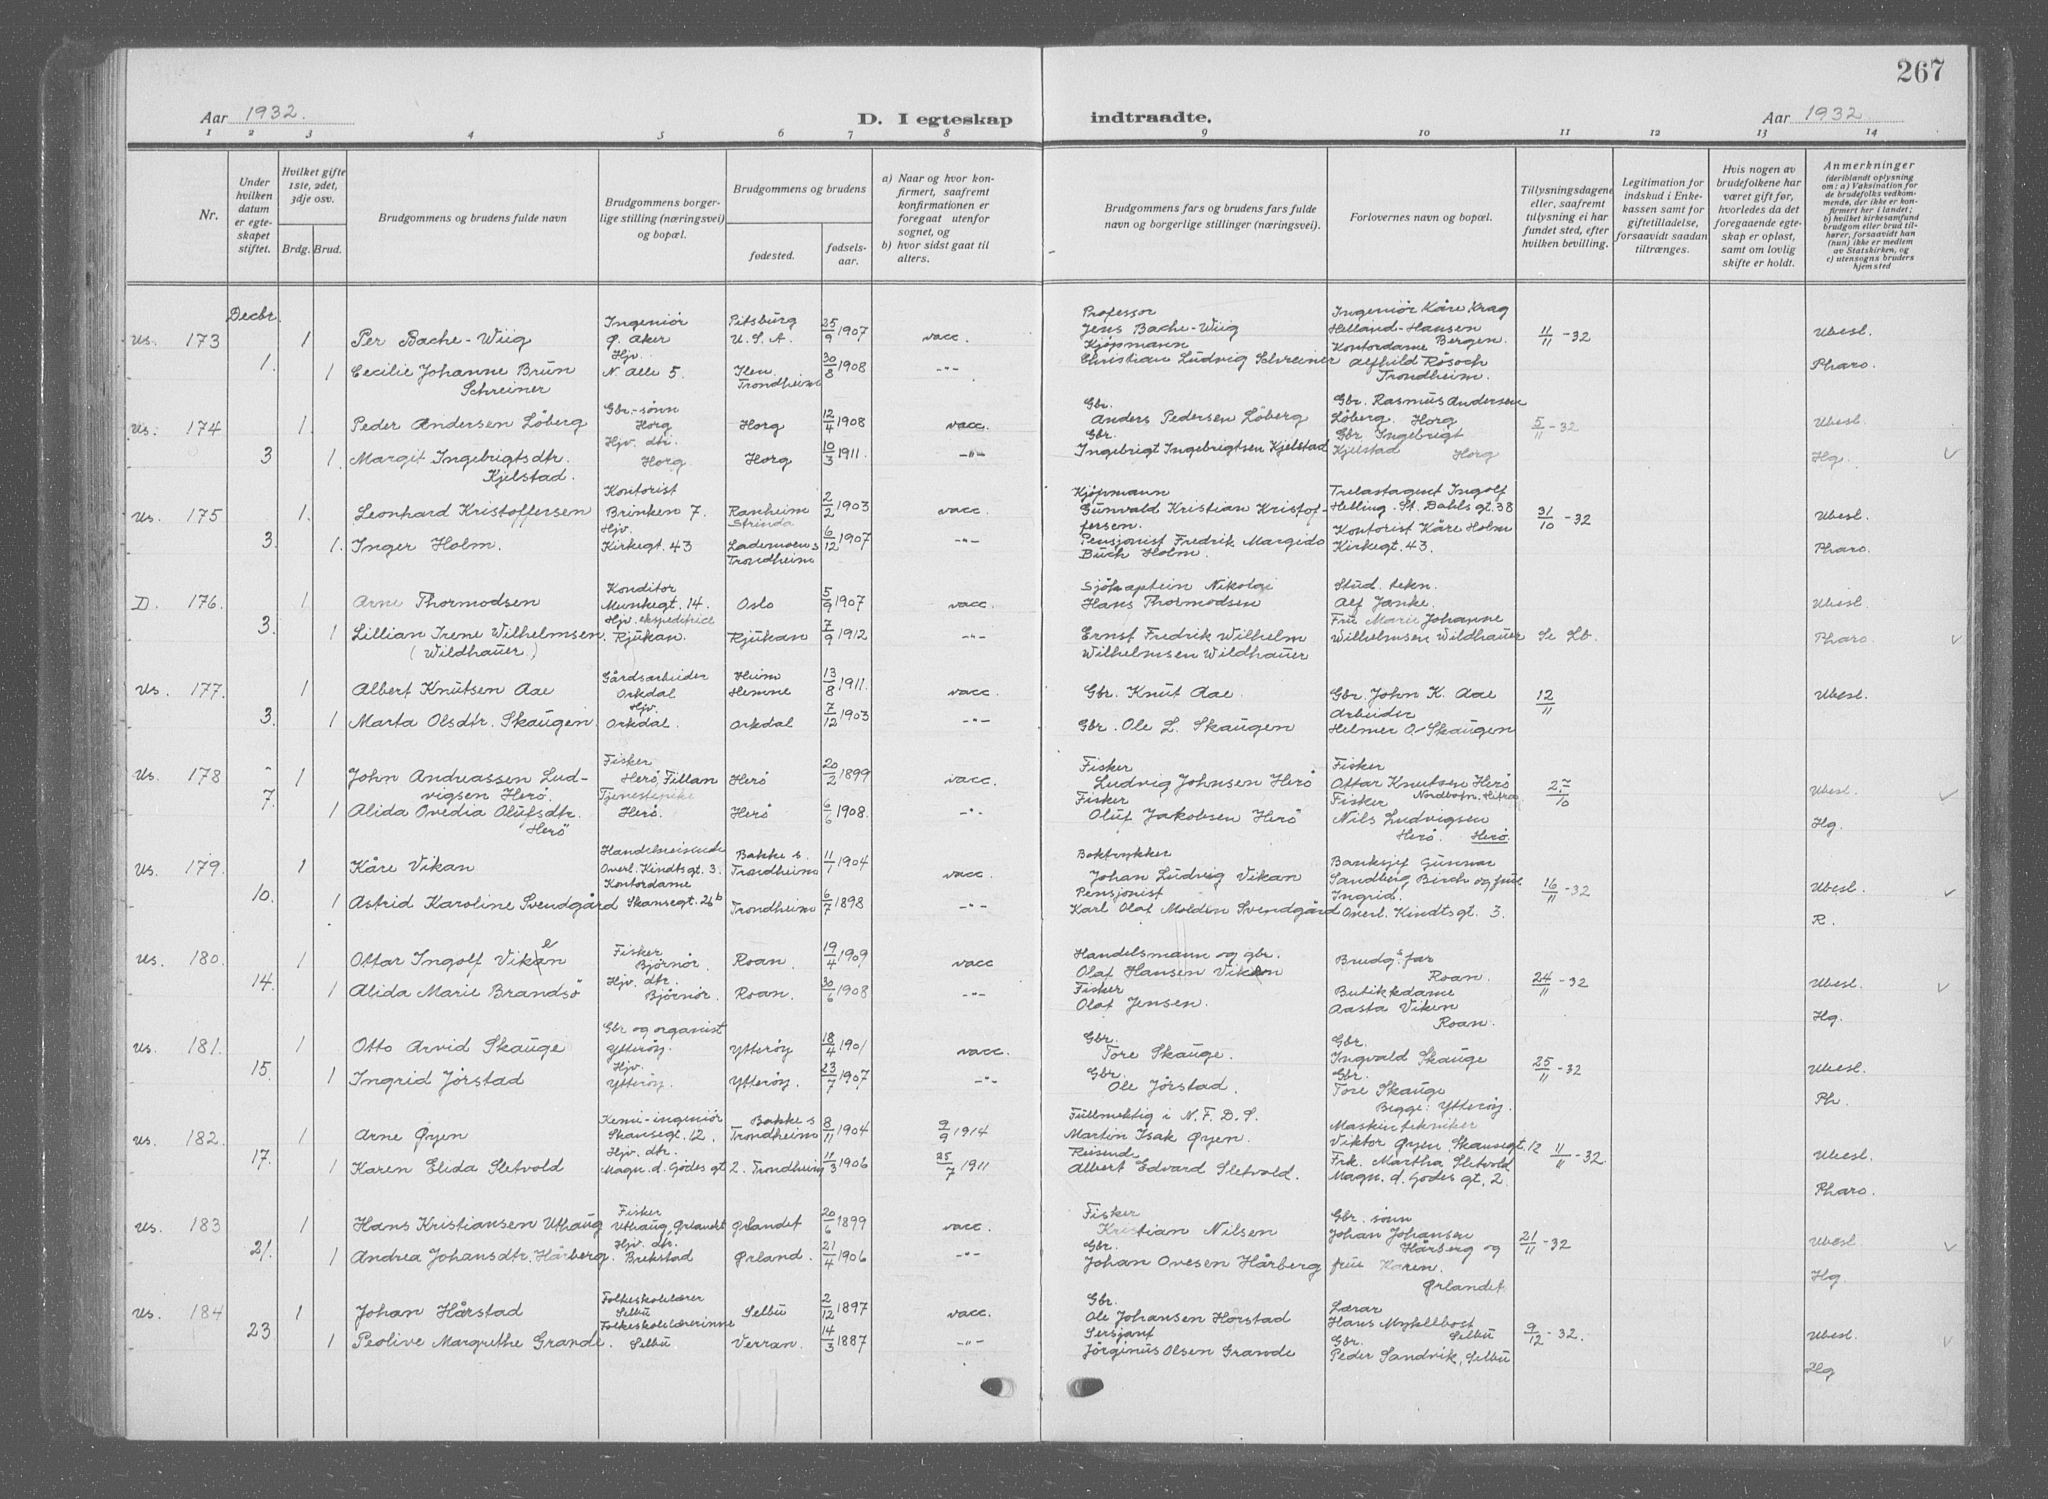 267
Aar 1932.
D. I egteskap indtraadte.
Aar 1932
1 2 3 4 5 6 7 8 9 10 11 12 13 14
Nr.
Under hvilken datum er egteskapet stiftet.
Hvilket gifte 1ste, 2det, 3dje osv.
Brdg. Brud.
Brudgommens og brudens fulde navn
Brudgommens borgerlige stilling (næringsvei) og bopæl.
Brudgommens og brudens
fødested.
fødselsaar.
a) Naar og hvor konfirmert, saafremt konfirmationen er foregaat utenfor sognet, og
b) hvor sidst gaat til alters.
Brudgommens fars og brudens fars fulde navn og borgerlige stillinger (næringsvei).
Forlovernes navn og bopæl.
Tillysningsdagene eller, saafremt tillysning ei har fundet sted, efter hvilken bevilling.
Legitimation for indskud i Enkekassen samt for giftetilladelse, forsaavidt saadan tiltrænges.
Hvis nogen av brudefolkene har været gift før, hvorledes da det foregaaende egteskap er opløst, samt om lovlig skifte er holdt.
Anmerkninger
(deriblandt oplysning om: a) Vaksination for de brudefolks vedkommende, der ikke er konfirmert her i landet; b) hvilket kirkesamfund brudgom eller brud tilhører, forsaavidt han (hun) ikke er medlem av Statskirken, og c) utensogns bruders hjemsted
Decbr.
Us. 173 1 Per Bache-Wiig Ingeniør Ø. Aker Pitsburg U.S.A. 25/9 1907 vacc. Professor Jens Bache-Wiig Ingeniør Kåre Krag Helland-Hansen Bergen. 11/11-32 Ubesl.
1. 1 Cecilie Johanne Brun Schreiner Hjv. N. Alle 5. Ilen Trondheim 30/8 1908 -"- Kjøpmann Christian Ludvig Schreiner Kontordame Alfhild Røsoch Trondheim. Pharo.
Us. 174 1. Peder Andersen Löberg Gbr.-sønn Horg Horg 12/4 1908 vacc. Gbr. Anders Pedersen Löberg Gbr. Rasmus Andersen Löberg. Horg 5/11-32 Ubesl.
3 1. Margit Ingebrigtsdtr. Kjelstad. Hjv. dtr. Horg Horg 10/3 1911. -"- Gbr. Ingebrigt Ingebrigtsen Kjelstad Gbr. Ingebrigt Kjelstad Horg Hg.
Us. 175 1. Leonhard Kristoffersen Kontorist Brinken 7. Ranheim Strinda 2/2 1903 vacc. Kjøpmann Gunvald Kristian Kristoffersen. Trelastagent Ingolf Helling. St. Dahls gt. 38 31/10-32 Ubesl.
3. 1. Inger Holm. Hjv. Kirkegt. 43 Lademoen s Trondheim 6/12 1907 -"- Pensjonist Fredrik Margido Buch Holm. Kontorist Kåre Holm Kirkegt. 43. Pharo.
D. 176. 1 Arne Thormodsen Konditor Munkegt. 14. Oslo 5/9 1907 vacc. Sjökaptein Nikolai Hans Thormodsen Stud. tekn. Alf Janke. Ubesl.
3. 1 Lillian Irene Wilhelmsen. (Wildhauer) Hjv. ekspeditrice Rjukan. Rjukan 7/9 1912 -"- Ernst Fredrik Wilhelm Wilhelmsen Wildhauer Fru Marie Johanne Wilhelmsen Wildhauer Se Lb. Pharo.
Us. 177. 1 Albert Knutsen Aae Gårdsarbeider Orkdal Heim Hemne 13/8 1911. vacc. Gbr. Knut Aae. Gbr. John K. Aae 12/11 Ubesl.
3. 1 Marta Olsdtr. Skaugen Hjv. Orkdal. Orkdal 7/12 1903 -"- Gbr. Ole L. Skaugen Arbeider Helmer O. Skaugen
Us. 178 1 John Andreassen Ludvigsen Herö. Fisker Herö, Fillan Herö 20/2 1899 vacc. Fisker Ludvig Johnsen Herö Fisker Ottar Knutsen Herö Nordbotn. Hitra 27/10 Ubesl.
7. 1 Alida Ovidia Olufsdtr. Herö Tjenestepike Herö. Herö 6/6 1908. -"- Fisker Oluf Jakobsen Herö Fisker Nils Ludvigsen Herö. Herö. Hg.
Us. 179 1 Kåre Vikan Handelsreisende Overl. Kindtsgt. 3. Bakke s. Trondheim 11/1 1904 vacc. Boktrykker Johan Ludvig Vikan Banksjef Gunnar Sandberg Birch og frue Ingrid. Overl. Kindtsgt. 3. 16/11-32 Ubesl.
10. 1 Astrid Karoline Svendgård Kontordame Skansegt. 26b Trondheim 6/7 1898 -"- Pensjonist Karl Olaf Molden Svendgård R.
Us. 180. 1 Ottar Ingolf Viken Fisker Bjørnør. Roan. 19/4 1909 vacc Handelsmann og gbr. Olaf Hansen Viken Brudg.s far Roan. 24/11-32 Ubesl.
14. 1 Alida Marie Brandsö Hjv. dtr. Bjørnør. Roan. 30/6 1908 -"- Fisker Olaf Jensen. Butikkdame Aasta Viken Roan. Hg.
Us. 181. 1 Otto Arvid Skauge Gbr og organist Ytterøy. Ytterøy 18/4 1901 vacc. Gbr. Tore Skauge. Gbr. Ingvald Skauge 25/11-32 Ubesl.
15. 1 Ingrid Jörstad Hjv. Ytterøy Ytterøy. 23/7 1907 -"- Gbr. Ole Jörstad. Gbr. Tore Skauge Begge: Ytterøy. Ph.
Us. 182. 1 Arne Øyen Kemi-ingeniør Skansegt. 12. Bakke s Trondheim 8/11 1904 9/9 1914 Fullmektig i N.F.D.S. Martin Isak Øyen. Maskintekniker Viktor Øyen, Skansegt. 12 11/11-32. Ubesl.
17. 1 Karen Elida Sletvold Hjv. dtr. Magn. d. Godes gt 2. Trondheim 11/3 1906 25/7 1911 Reisende Albert Edvard Sletvold. Frk. Martha Sletvold Magn. d. Godes gt. 2. Pharo.
Us. 183 1 Hans Kristiansen Uthaug Fisker Uthaug, Ørlandet Ørlandet 20/6 1899 vacc. Fisker Kristian Nilsen Gbr. sønn Johan Johansen Hårberg og frue Karen. Ørlandet 21/11-32 Ubesl.
21. 1 Andrea Johansdtr. Hårberg. Hjv. dtr. Brekstad Ørland. 21/4 1906 -"- Gbr. Johan Ovesen Hårberg Hg.
Us. 184 1 Johan Hårstad Folkeskolelærer Selbu Selbu 2/12 1897 vacc. Gbr. Ole Johansen Hårstad Lærar Hans Myklebost Selbu 9/12-32. Ubesl.
23 1 Peolive Margrethe Grande. Folkeskolelærerinne Selbu Verran. 14/3 1887 -"- Sersjant Jörginus Olsen Grande Gbr. Peder Sandvik, Selbu Hg